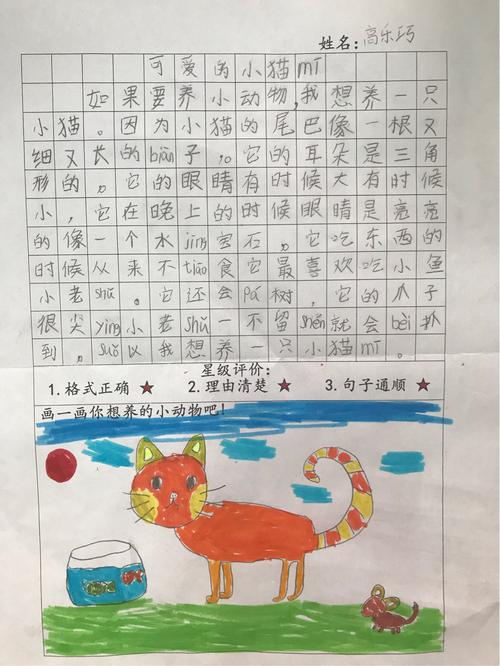 姓名：高乐巧
可爱的小猫mī
如果要养小动物，我想养一只
小猫。因为小猫的尾巴像一根又
细又长的biān子，。它的耳朵是三角
形的，。它的眼睛有时候大有时候
小，它在晚上的时候眼睛是亮亮
的像一个水jīng宝石，。它吃东西的
时候从来不tiāo食它最喜欢吃小鱼
小老shǔ。它还会pá树，它的爪子
很尖yīng小老shǔ一不留shén就会bèi扑
到，suǒ以我想养一只小猫mī。
星级评价：
1. 格式正确 ★ 2. 理由清楚 ★ 3. 句子通顺 ★
画一画你想养的小动物吧！